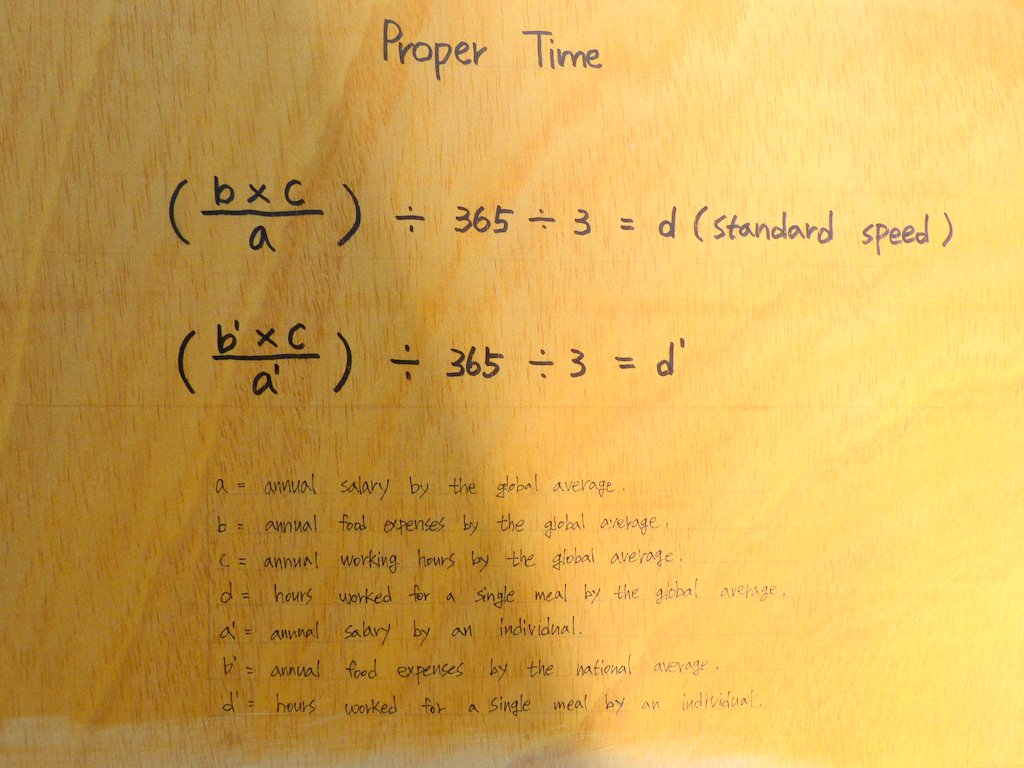 Proper Time
( b × c / a ) ÷ 365 ÷ 3 = d (standard speed)
( b' × c / a' ) ÷ 365 ÷ 3 = d'
a = annual salary by the global average.
b = annual food expenses by the global average.
c = annual working hours by the global average.
d = hours worked for a single meal by the global average.
a' = annual salary by an individual.
b' = annual food expenses by the national average.
d' = hours worked for a single meal by an individual.